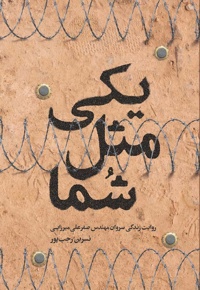 یکی
مثل
شما
روایت زندگی سروان مهندس صفرعلی میرزایی
نسرین رجب‌پور